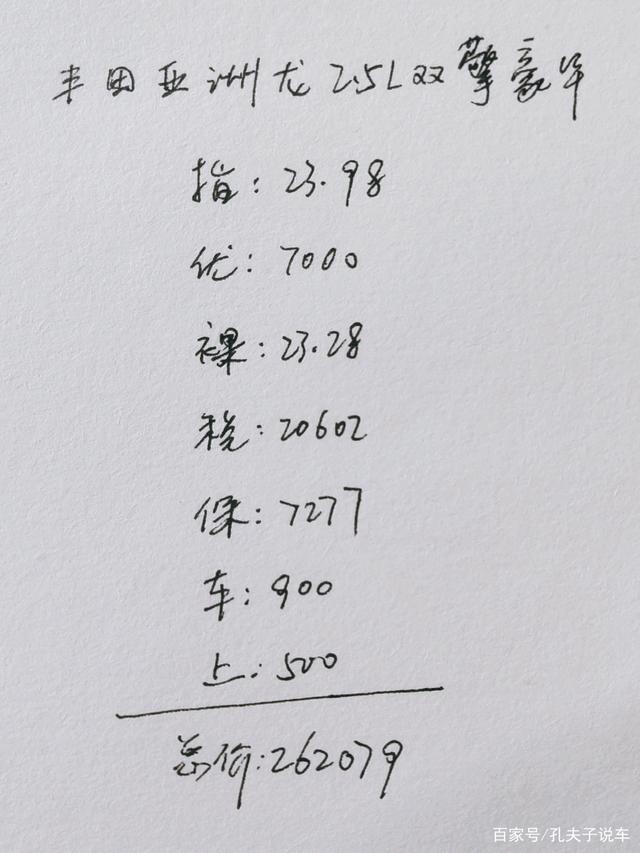 丰田亚洲龙2.5L双擎豪华
指:23.98
优:7000
裸:23.28
税:20602
保:7277
车:900
上:500
总价:262079
百家号/孔夫子说车